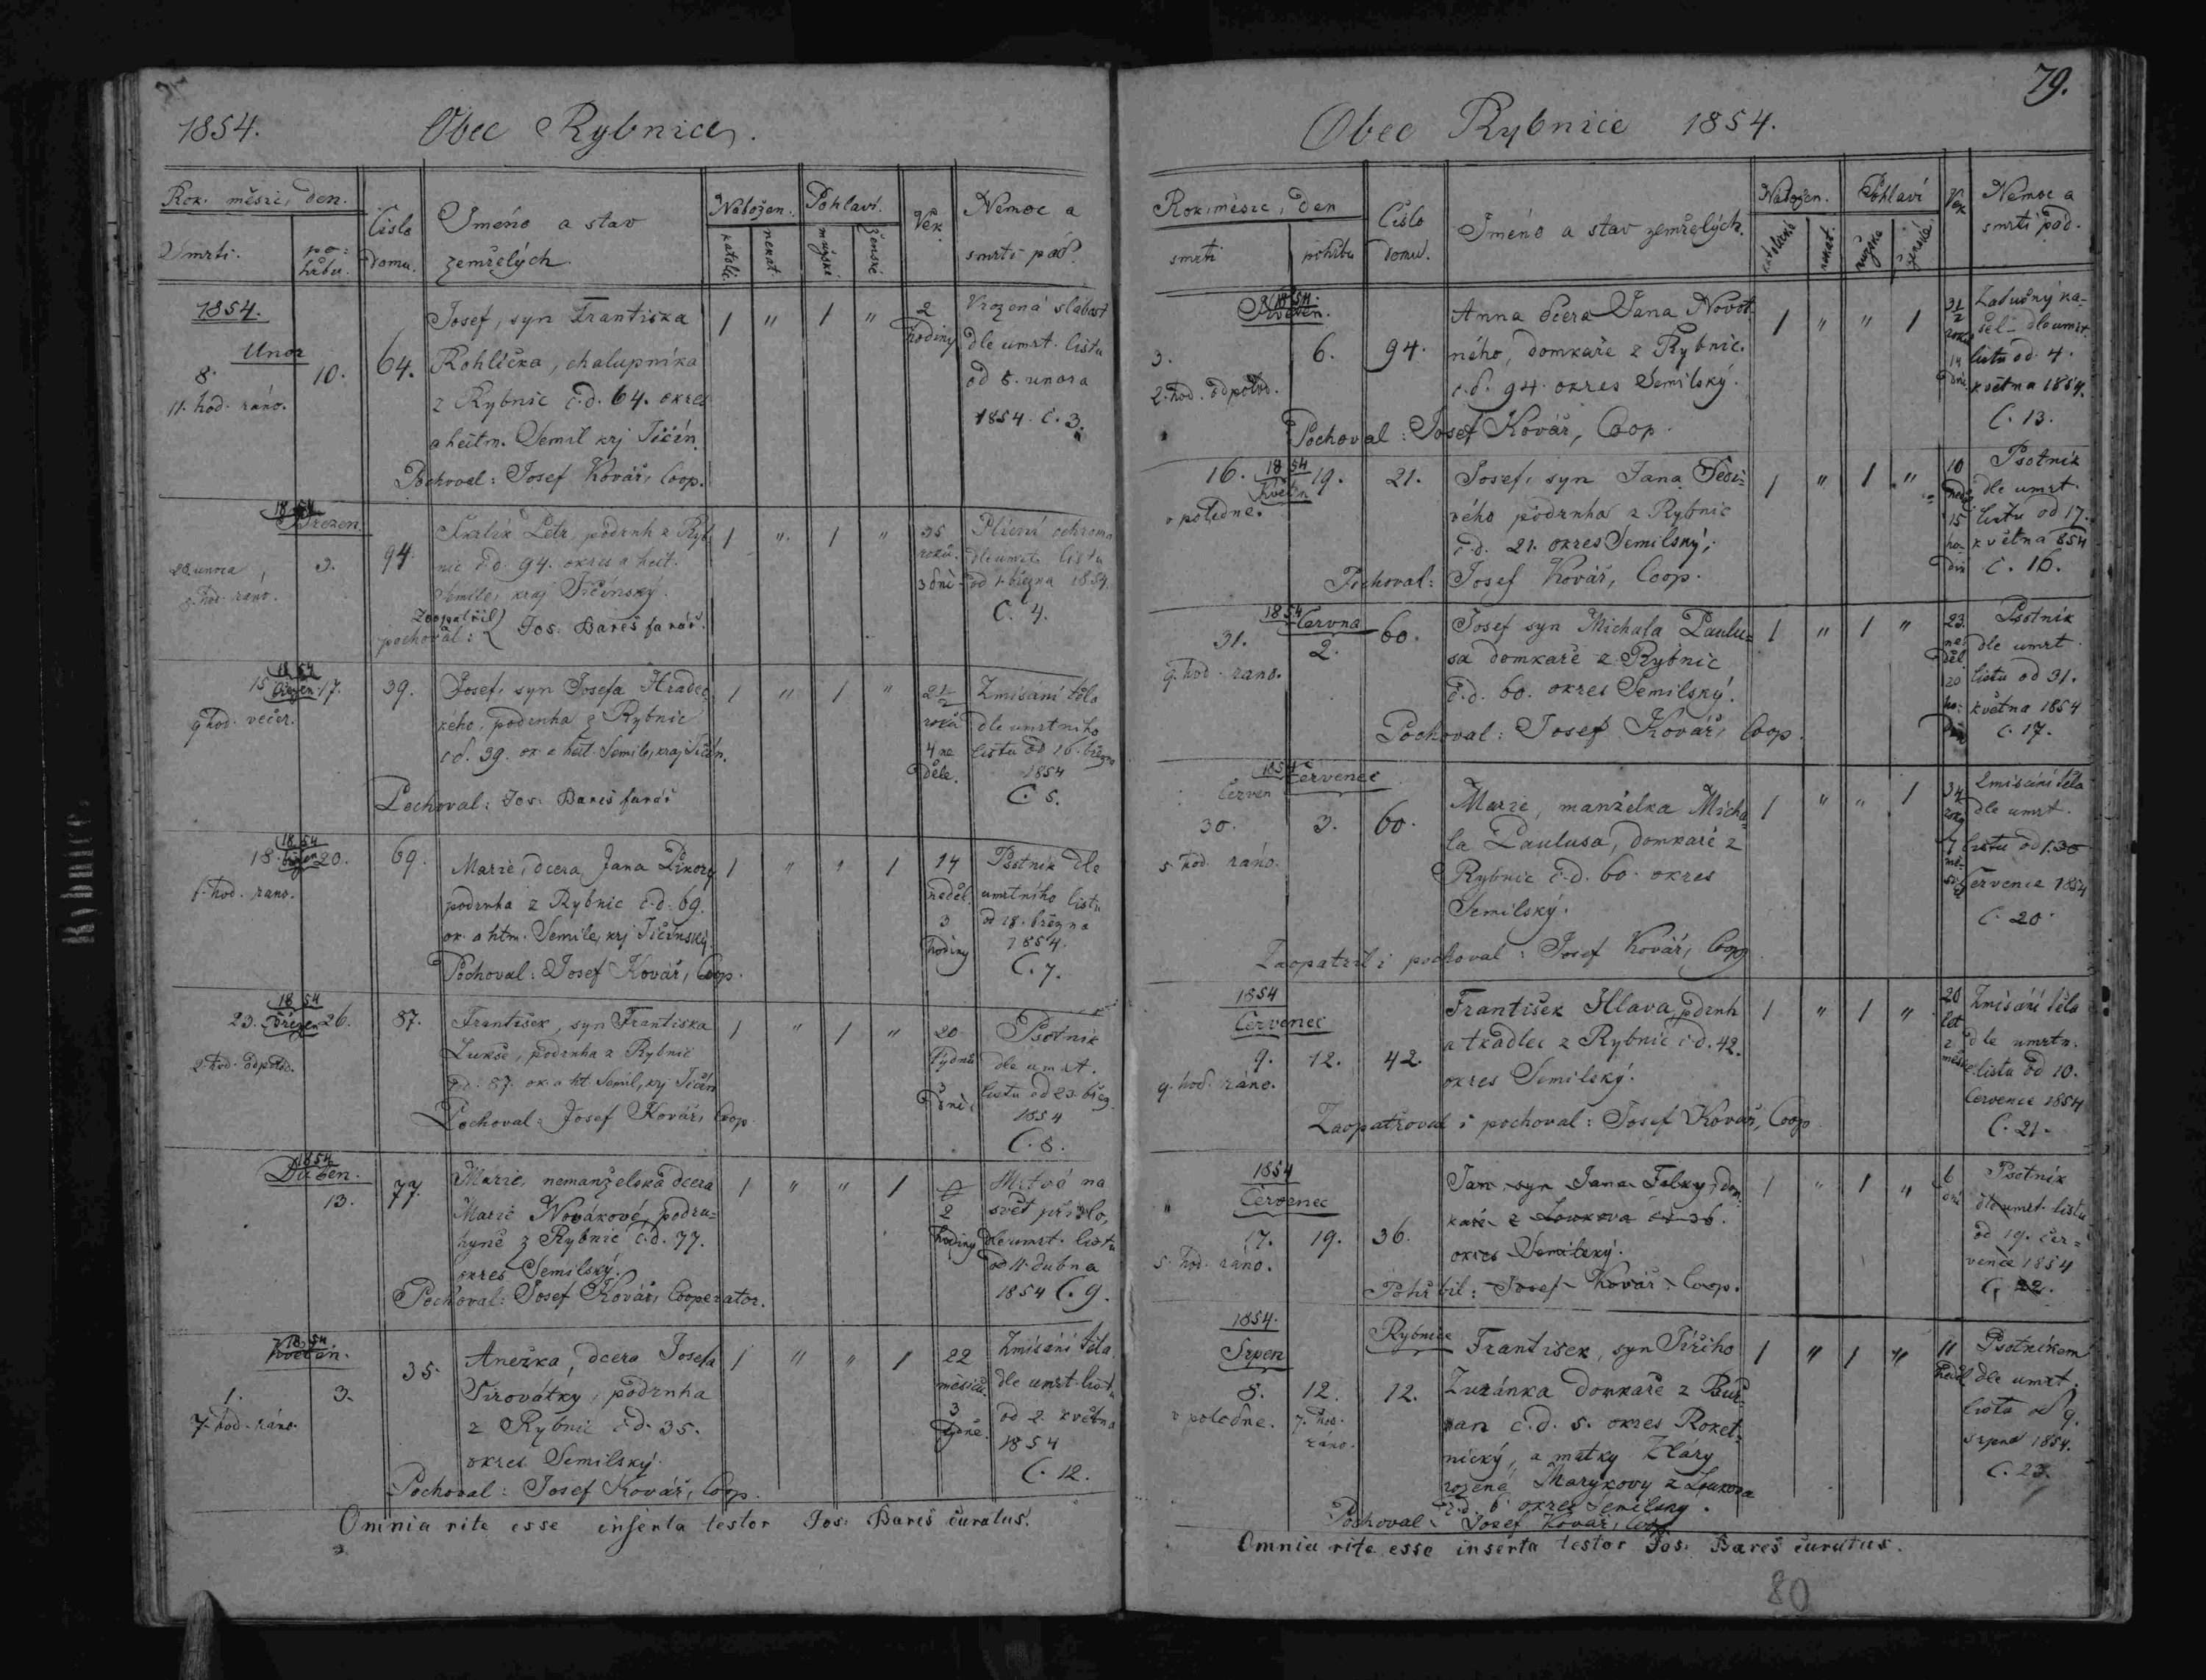 1854. Obec Rybnice.
Rok. měsíc, den. Číslo domu. Jméno a stav zemřelých. Nábožen. Pohlaví. Věk. Nemoc a
Úmrtí. pohřbu. katolic. nekat. mužské ženské smrti pád.
1854. Josef, syn Františka 1 " 1 " 2 Vrozená slabost
Unor Rohlička, chalupníka hodiny dle umrt. listu
8. 10. 64. z Rybnic č.d. 64. okres od 8. unora
11. hod. ráno. a heitm. Semil krj Jičín. 1854. Č. 3.
Pochoval: Josef Kovář, Coop.
1854
Březen. Petr, podruh z Ryb- 1 " 1 " 35 Plícní
28. unora 3. 94. nic č.d. 94. okres a heit. roků. dle umrt. listu
8. hod. ráno. Semile, kraj Jičínský. 3 dni od 1. března 1854.
Zaopatřil Č. 4.
pochoval: Jos. Bareš farář.
1854
15 Březen 17. 39. Josef, syn Josefa Hradec- 1 " 1 " 2 1/2 Zmísání těla
9 hod. večer. kého, podruha z Rybnic roků dle umrtního
č.d. 39. ok. a heit. Semile, kraj Jičín. 4 ne listu od 16. března
děle. 1854
Pochoval: Jos. Bareš farář Č. 5.
1854
18. březen 20. 69. Marie, dcera Jana Pikory 1 " " 1 14 Psotník dle
1. hod. rano. podruha z Rybnic č.d. 69. neděl. umrtního listu
ok. a htm. Semile, krj Jičínský. 3 od 18. března
Pochoval: Josef Kovář, Coop. hodiny 1854.
Č. 7.
1854
23. Březen 26. 87. František, syn Františka 1 " 1 " 20. Psotník
2. hod. odpold. Lukše, podruha z Rybnic týdnů dle umrt.
č.d. 87. ok. a ht Semil, krj Jičín 3 listu od 23. břez.
Pochoval: Josef Kovář, Coop dni. 1854
Č. 8.
1854
Duben. Marie, nemanželská dcera 1 " " 1 Mrtvá na
13. 77. Marie Novákové, podru- 2 svět přišlo,
hyně z Rybnic č.d. 77. hodiny dle umrt. listu
okres Semilský. od 11. dubna
Pochoval: Josef Kovář, Cooperator. 1854 Č. 9.
1854
Květen. 35. Anežka, dcera Josefa 1 " " 1 22 Zmísání těla
1. 3. Syrovátky, podruha měsíců. dle umrt. listu
7. hod. ráno. z Rybnic č.d. 35. 3 od 2. května
okres Semilský. týdne. 1854
Pochoval: Josef Kovář, Coop. Č. 12.
Omnia rite esse inserta testor Jos. Bareš curatus.
79.
Obec Rybnice 1854.
Rok, měsíc, den Číslo domu. Jméno a stav zemřelých. Nábožen. Pohlaví Věk Nemoc a
smrti pohřbu katolické nekat. mužské ženské smrti pád.
1854. Anna dcera Jana Novot- 1 " " 1 3 1/2 Zádušný ka-
Květen. roku šel dle umrt.
3. 6. 94. ného, domkaře z Rybnic. 14 listu od 4.
2. hod. odpold. č.d. 94. okres Semilský. dni. května 1854.
Pochoval: Josef Kovář, Coop. Č. 13.
16. 1854 Květn 19. 21. Josef, syn Jana Šedi- 1 " 1 " 10 Psotník
v poledne. vého podruha z Rybnic neděl dle umrt.
č.d. 21. okres Semilský, 15 listu od 17.
Pochoval: Josef Kovář, Coop. ho- května 854
din Č. 16.
1854 Června 60. Josef syn Michala Paulu- 1 " 1 " 23. Psotník
31. 2. sa domkaře z Rybnic ne- děl. dle umrt.
9. hod. rano. č.d. 60. okres Semilský. 20 listu od 31.
Pochoval: Josef Kovář, Coop. ho- května 1854
din Č. 17.
1854 Červenec
Červen Marie, manželka Micha- 1 " " 1 34 Zmísání těla
30. 3. 60. la Paulusa, domkaře z roky dle umrt.
5. hod. ráno. Rybnic č.d. 60. okres 7 listu od 1. 30
Semilský. mě- Července 1854
Zaopatřil i pochoval: Josef Kovář, Coop. Č. 20.
1854 František Hlava, pdruh 1 " 1 " 20 Zmísání těla
Červenec a tkadlec z Rybnic č.d. 42. let dle umrtn.
9. 12. 42. okres Semilský. 2 listu od 10.
9. hod. ráno. měsíce Července 1854
Zaopatřoval i pochoval: Josef Kovář, Coop Č. 21.
1854 Jan, syn Jana Falky, dom- 1 " 1 " 6 Psotník
Červenec kaře z Loukova čd 36. dní dle umrt. listu
17. 19. 36. okres Semilský. od 19. čer-
5. hod. ráno. Pohřbil: Josef Kovář, Coop. vence 1854
Č. 22.
1854. Rybnice František, syn Jiřího 1 " 1 " 11 Psotníkem
Srpen neděl dle umrt.
8. 12. 12. Zuzánka domkaře z listu od 9.
v poledne. 7. hod. ráno. č.d. 5. okres Roket- srpna 1854.
nický, a matky Kláry Č. 23.
rozené Marykovy z Loukova
č.d. 6 okres Semilský.
Pochoval: Josef Kovář, Coop
Omnia rite esse inserta testor Jos. Bareš curatus.
80
Rybnice